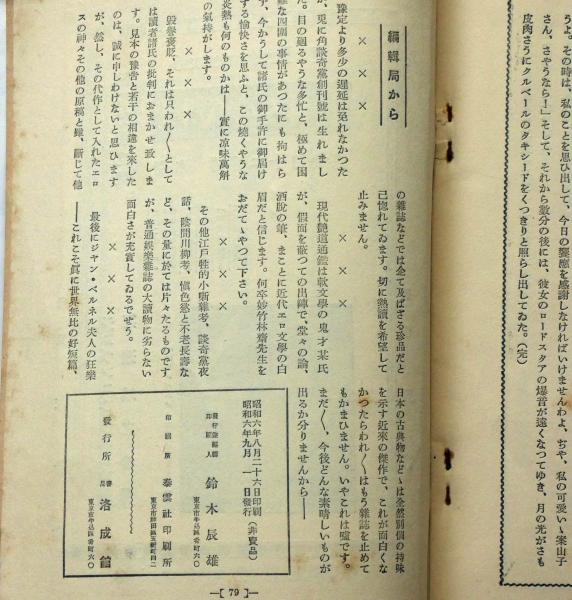 うよ。その時は、私のことを思ひ出して、今日の饗應を感謝しなければいけませんわよ、ぢや、私の可愛いゝ案山子
さん、さやうなら！」そして、それから數分の後には、彼女のロードスタアの爆音が遠くなつてゆき、月の光がさも
皮肉さうにクルベールのタキシードをくつきりと照らし出してゐた。（完）
編輯局から
× × ×
豫定より多少の遲延は免れなかつた
が、兎に角談奇黨創刊號は生れまし
た。目の廻るやうな多忙と、極めて困
難な四圍の事情があつたにも拘はら
ず、今かうして諸氏の御手許に御届け
する愉快さを思ふと、この燒くやうな
炎熱も何のものかは――實に凉味萬斛
の氣持がします。
× × ×
毀譽褒貶、それは只われ〳〵として
は讀者諸氏の批判におまかせ致しま
す。見本の豫告と若干の相違を來した
のは、誠に申しわけないと思ひます
が、然し、その代作として入れたエロ
スの神々その他の原稿と雖、斷じて他
の雜誌などでは企て及ばざる珍品だと
己惚れてゐます。切に熟讀を希望して
止みません。
× × ×
現代艷道通鑑は軟文學の鬼才某氏
が、假面を蔽つての出陣で、堂々の論、
洒脫の筆、まことに近代エロ文學の白
眉だと信じます。何卒妙竹林齋先生を
おだてゝやつて下さい。
× × ×
その他江戶牲的小噺雜考、談奇黨夜
話、陰間川柳考、愼色慾と不老長壽な
ど、その量に於ては片々たるものです
が、普通娯樂雜誌の大讀物に劣らない
面白さが充實してゐるでせう。
× × ×
最後にジャン・ベルネル夫人の狂樂
――これこそ眞に世界無比の好短篇、
日本の古典物などゝは全然別個の持味
を示す近來の傑作で、これが面白くな
かつたらわれ〳〵はもう雜誌を止めて
もかまひません。いやこれは噓です。
まだ〳〵、今後どんな素晴しいものが
出るか分りませんから――
昭和六年八月二十六日印刷
昭和六年九月 一日發行 （非賣品）
發行兼編輯印刷人 鈴木辰雄
東京市牛込區肴町六〇
印刷所 泰雲社印刷所
發行所 書局 洛成館
東京市牛込區肴町六〇
―[ 79 ]―